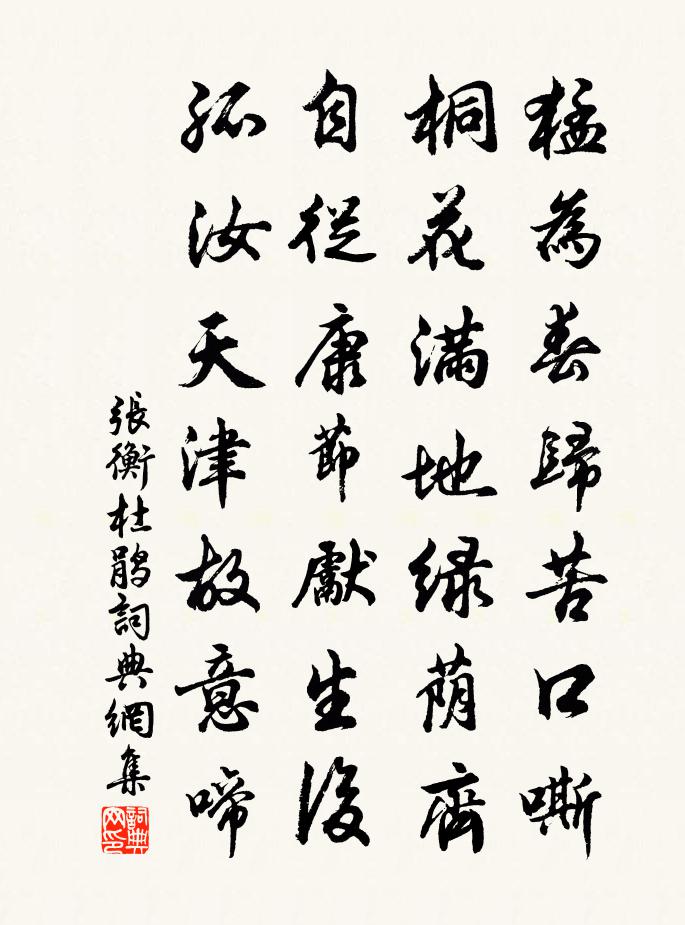 猛為春歸苦口嘶
桐花滿地綠荫齊
自從康節獻生後
孤汝天津故意啼
張衡杜鹃詞典網集
詞典网印